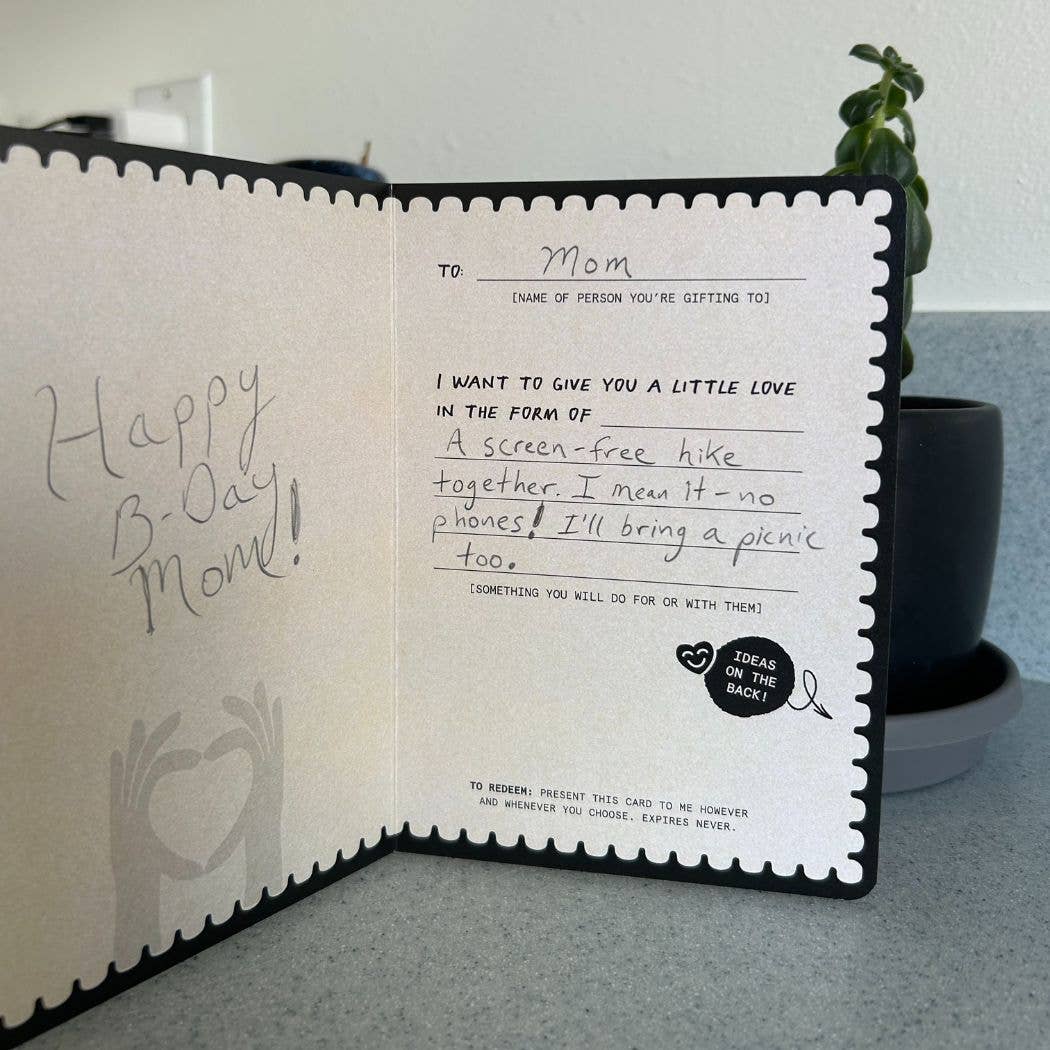 Happy
B-Day
Mom!
TO: Mom
[NAME OF PERSON YOU'RE GIFTING TO]
I WANT TO GIVE YOU A LITTLE LOVE
IN THE FORM OF
A screen-free hike
together. I mean it - no
phones! I'll bring a picnic
too.
[SOMETHING YOU WILL DO FOR OR WITH THEM]
IDEAS
ON THE
BACK!
TO REDEEM: PRESENT THIS CARD TO ME HOWEVER
AND WHENEVER YOU CHOOSE. EXPIRES NEVER.